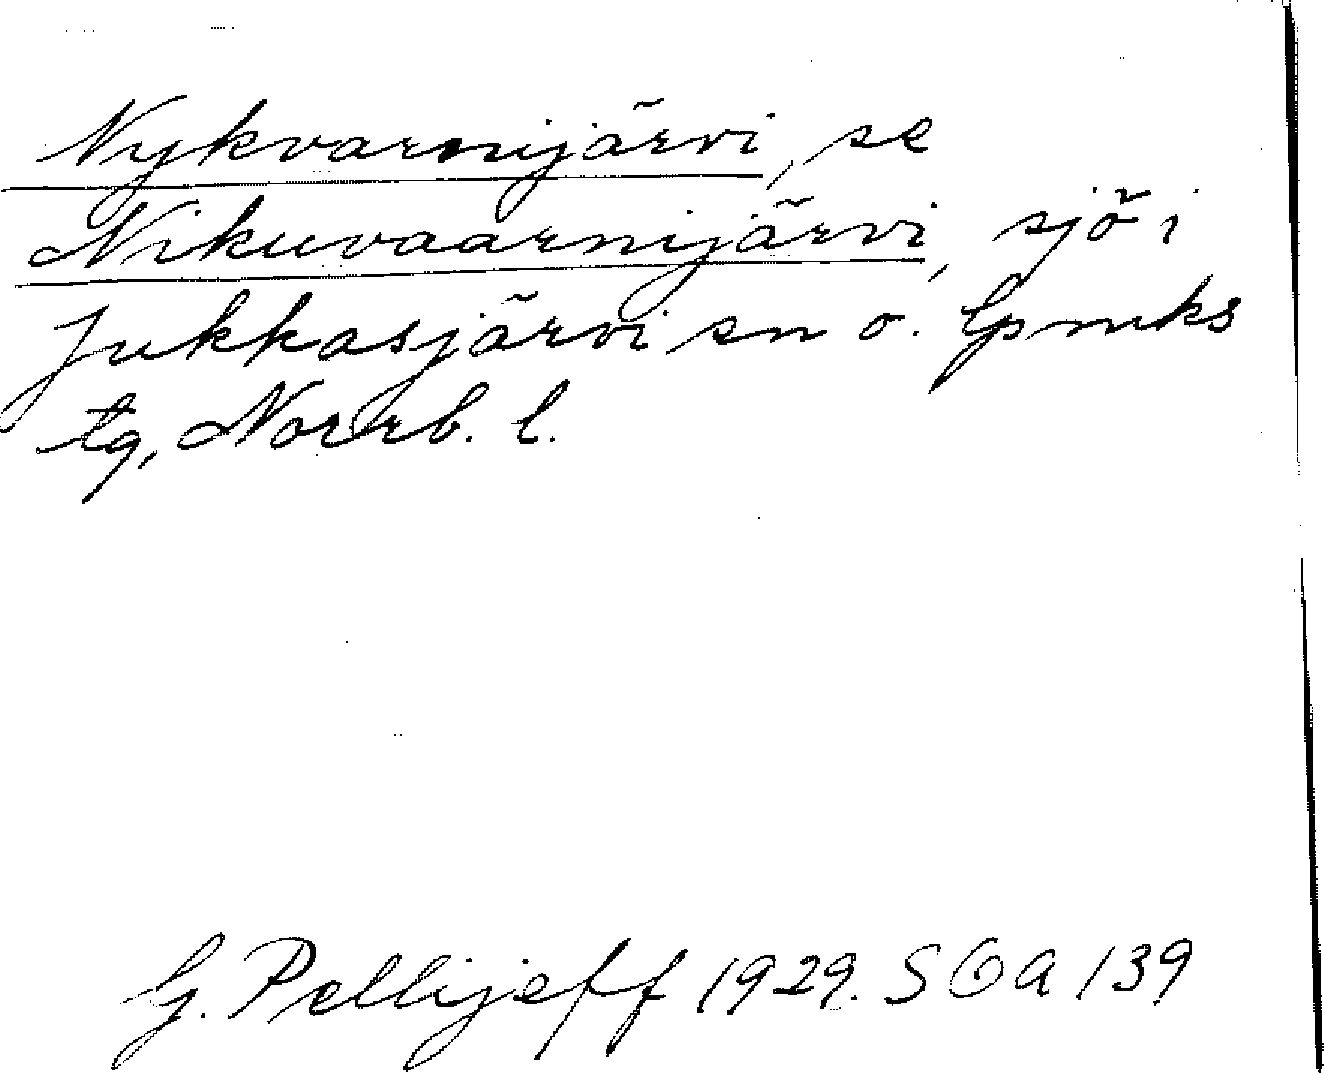 Nykvarnijärvi, se
Nikuvaarnijärvi, sjö i
Jukkasjärvi sn o. lpmks
tg, Norrb. l.
G. Pellijeff 1929. SOA 139